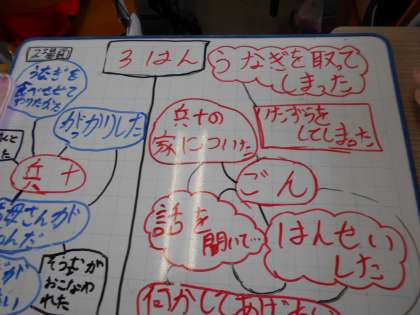 3はん
うなぎを取って
しまった
うなぎを
食べさせて
がっかりした
兵十の
家についた
いたずらを
してしまった
兵十
ごん
話を
聞いて…
はんせい
した
母さんが
そうしきが
おこなわ
れた
何かしてあげたい